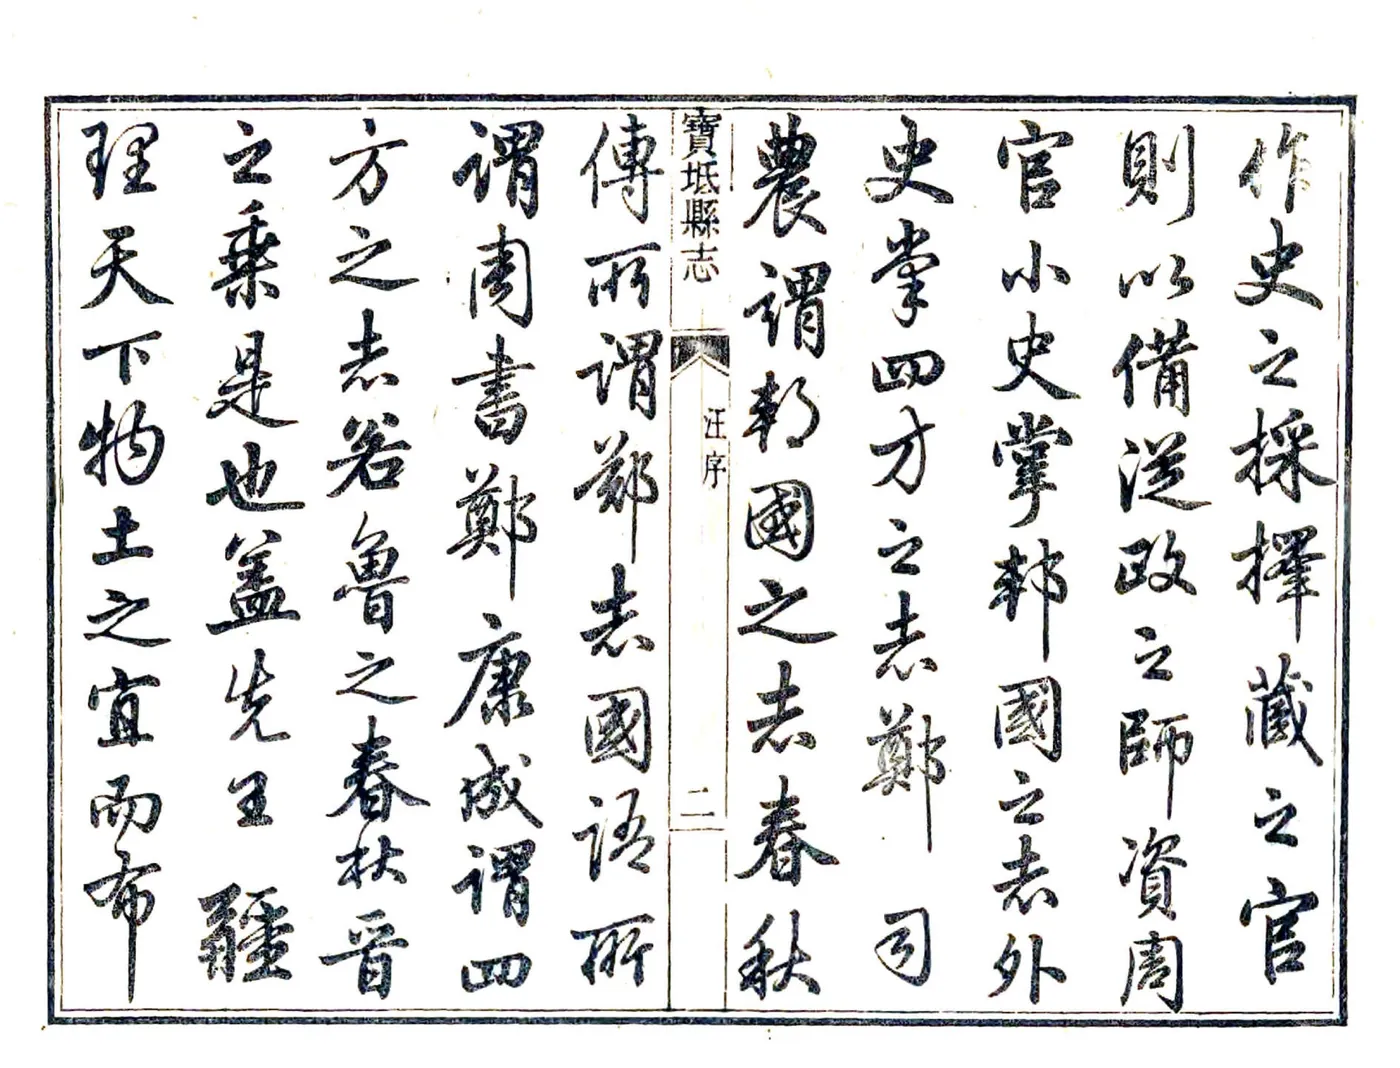 作史之採擇藏之官
則以備從政之師資周
官小史掌邦國之志外
史掌四方之志鄭司
農謂邦國之志春秋
寶坻縣志
汪序
二
傳所謂鄭志國語所
謂周書鄭康成謂四
方之志若魯之春秋晉
之乗是也盖先王疆
理天下物土之宜而布